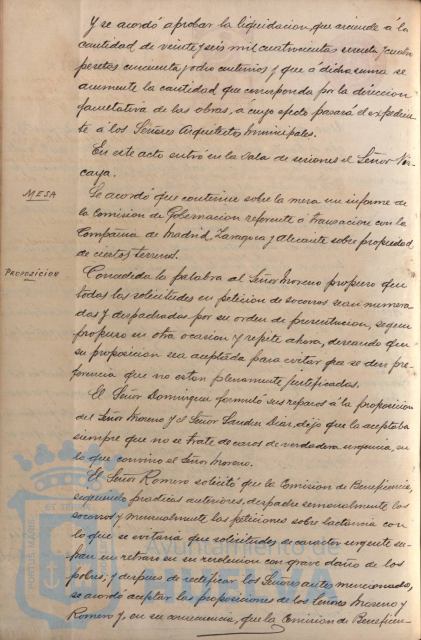 Y se acordó aprobar la liquidacion, que asciende á la
cantidad de veinte y seis mil cuatrocientas sesenta y cuatro
pesetas cincuenta y ocho centimos y que á dicha suma se
aumente la cantidad que corresponda por la direccion
facultativa de las obras, á cuyo efecto pasará el expedien-
te á los Señores Arquitectos Municipales.
En este acto entró en la Sala de sesiones el Señor Viz-
caya.
MESA
Se acordó que continúe sobre la mesa un informe de
la Comision de Gobernacion referente á transacion con la
Compañia de Madrid, Zaragoza y Alicante sobre propiedad
de ciertos terrenos.
PROPOSICION
Concedida la palabra al Señor Moreno propuso que
todas las solicitudes en peticion de socorros sean numera-
das y despachadas por su orden de presentacion, segun
propuso en otra ocasion y repite ahora, deseando que
su proposicion sea aceptada para evitar que se den pre-
ferencia que no estan plenamente justificadas.
El Señor Dominguez formuló sus reparos á la proposicion
del Señor Moreno y el Señor Sanchez Dias, dijo que la aceptaba
siempre que no se trate de casos de verdadera urgencia, en
lo que convino el Señor Moreno.
El Señor Romero solicitó que la Comision de Beneficencia,
siguiendo practicas anteriores, despache semanalmente los
socorros y mensualmente las peticiones sobre lactancia con
lo que se evitaria que solicitudes de caracter urgente su-
fran un retraso en su resolucion con grave daño de los
pobres; y despues de rectificar los Señores antes mencionados,
se acordó aceptar las proposiciones de los Señores Moreno y
Romero y, en su consecuencia, que la Comision de Beneficen-
Ayuntamiento de